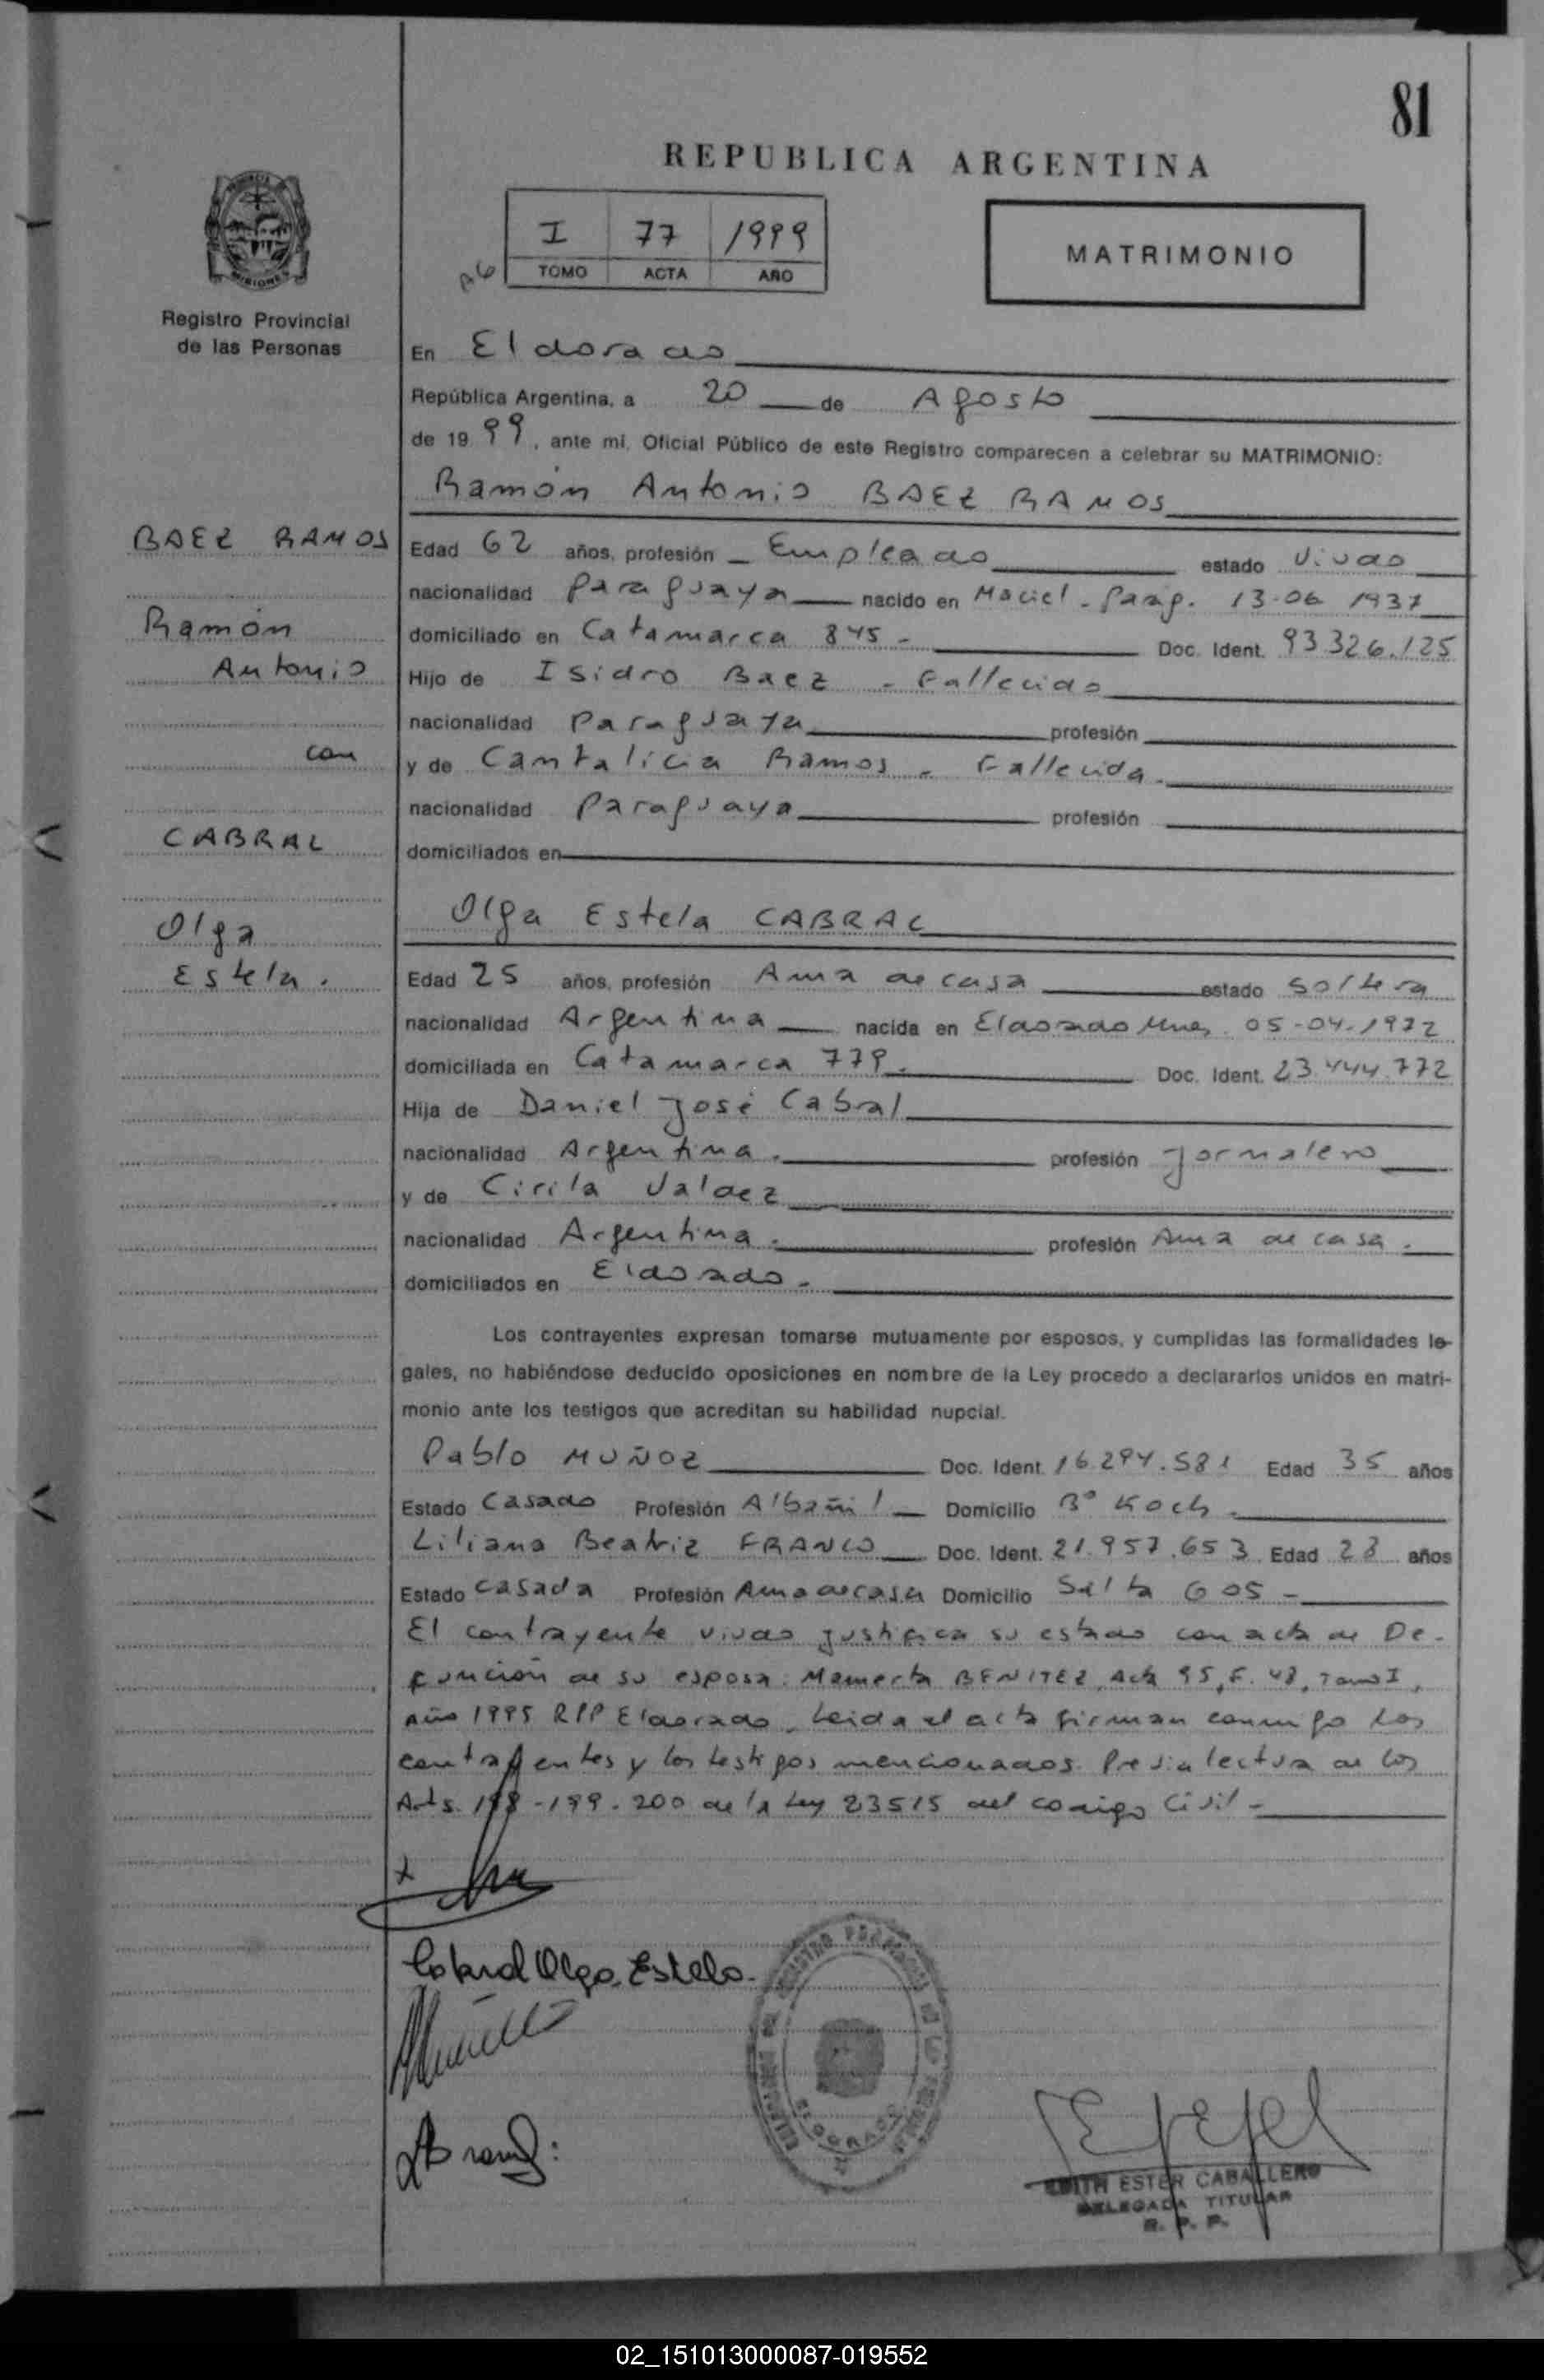 81
REPUBLICA ARGENTINA
I 77 1999
TOMO ACTA AÑO
MATRIMONIO
Registro Provincial
de las Personas
En Eldorado
República Argentina, a 20 de Agosto
de 19 99, ante mí, Oficial Público de este Registro comparecen a celebrar su MATRIMONIO:
Ramón Antonio BAEZ RAMOS
BAEZ RAMOS
Ramón
Antonio
con
CABRAL
Olga
Estela.
Edad 62 años, profesión - Empleado estado Viudo
nacionalidad Paraguaya nacido en Maciel - Parag. 13-06 1937
domiciliado en Catamarca 845 - Doc. Ident. 93.326.125
Hijo de Isidro Baez - Fallecido
nacionalidad Paraguaya profesión
y de Cantalicia Ramos - Fallecida.
nacionalidad Paraguaya profesión
domiciliados en
Olga Estela CABRAL
Edad 25 años, profesión Ama de casa estado Soltera
nacionalidad Argentina nacida en Eldorado Mnes. 05-04-1972
domiciliada en Catamarca 779. Doc. Ident. 23.444.772
Hija de Daniel José Cabral
nacionalidad Argentina. profesión Jornalero
y de Cirila Valdez
nacionalidad Argentina. profesión Ama de casa.
domiciliados en Eldorado.
Los contrayentes expresan tomarse mutuamente por esposos, y cumplidas las formalidades le-
gales, no habiéndose deducido oposiciones en nombre de la Ley procedo a declararlos unidos en matri-
monio ante los testigos que acreditan su habilidad nupcial.
Pablo MUÑOZ Doc. Ident. 16.294.581 Edad 35 años
Estado Casado Profesión Albañil Domicilio Bº Koch.
Liliana Beatriz FRANCO Doc. Ident. 21.957.653 Edad 28 años
Estado Casada Profesión Ama de casa Domicilio Salta 605 -
El contrayente viudo justifica su estado con acta de De-
función de su esposa: Mamerta BENITEZ, Acta 95, F. 48, Tomo I,
Año 1995 RPP Eldorado. Leida el acta firman conmigo los
contrayentes y los testigos mencionados. Previa lectura de los
Arts. 198-199-200 de la Ley 23515 del codigo Civil -
Cabral Olga Estela.
EDITH ESTER CABALLERO
DELEGADA TITULAR
R. P. P.
02_151013000087-019552